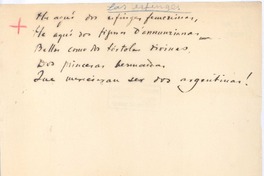 Las esfinges
He aquí dos esfinges femeninas,
He aquí dos figuras D'annunzianas
Bellas como dos tórtolas divinas.
Dos princesas hermanas.
Que merecieran ser dos argentinas!